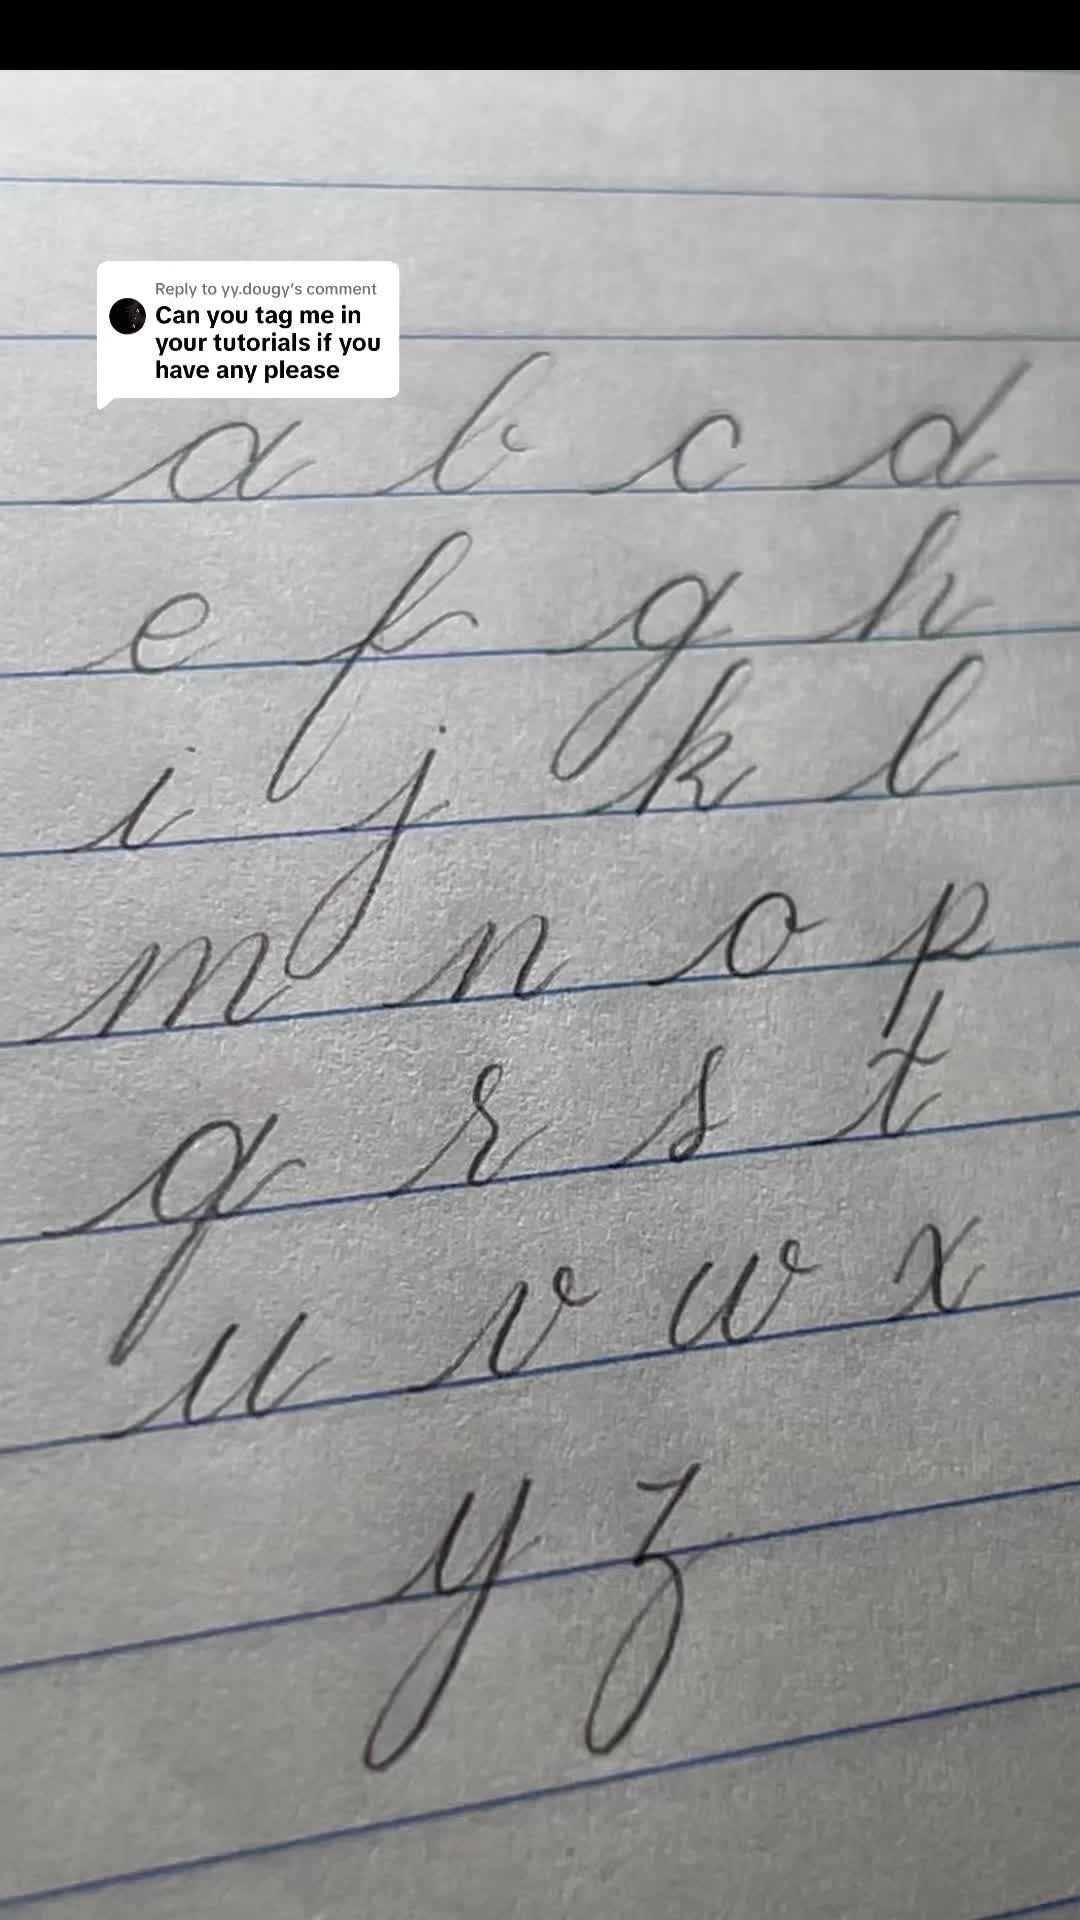 Reply to yy.dougy's comment
Can you tag me in
your tutorials if you
have any please
a b c d
e f g h
i j k l
m n o p
q r s t
u v w x
y z